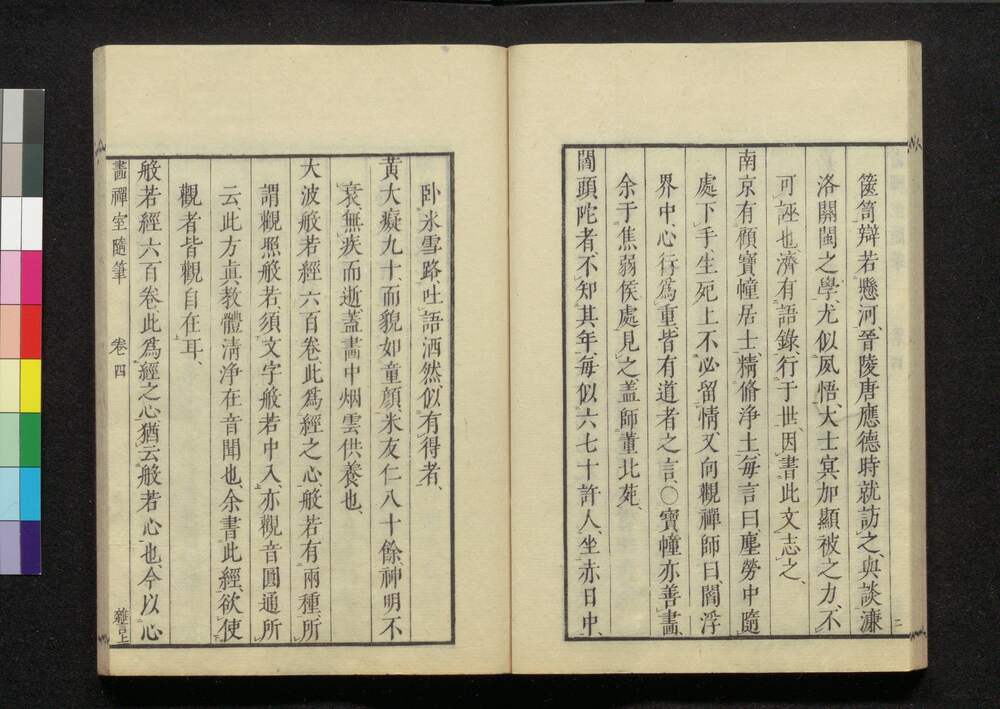 篋笥辯若懸河、晉陵唐應德時就訪之、與談濂
洛關閩之學、尤似夙悟、大士冥加顯被之力、不
可誣也、濟有語錄、行于世、因書此文志之、
南京有顧寶幢居士、精脩淨土、每言曰、塵勞中隨
處下手、生死上不必留情、又向觀禪師曰、閻浮
界中、心行爲重、皆有道者之言、〇寶幢亦善畫、
余于焦弱侯處見之、蓋師董北苑、
閻頭陀者、不知其年、每似六七十許人、坐赤日中、
臥氷雪路、吐語洒然、似有得者、
黃大癡九十、而貌如童顏、米友仁八十餘、神明不
衰、無疾而逝、蓋畫中烟雲供養也、
大般若經六百卷、此爲經之心、般若有兩種、所
謂觀照般若、須文字般若中入、亦觀音圓通所
云、此方眞教體清淨在音聞也、余書此經、欲使
觀者皆觀自在耳、
般若經六百卷、此爲經之心、猶云般若心也、今以心
畫禪室隨筆 卷四 雜言上
二